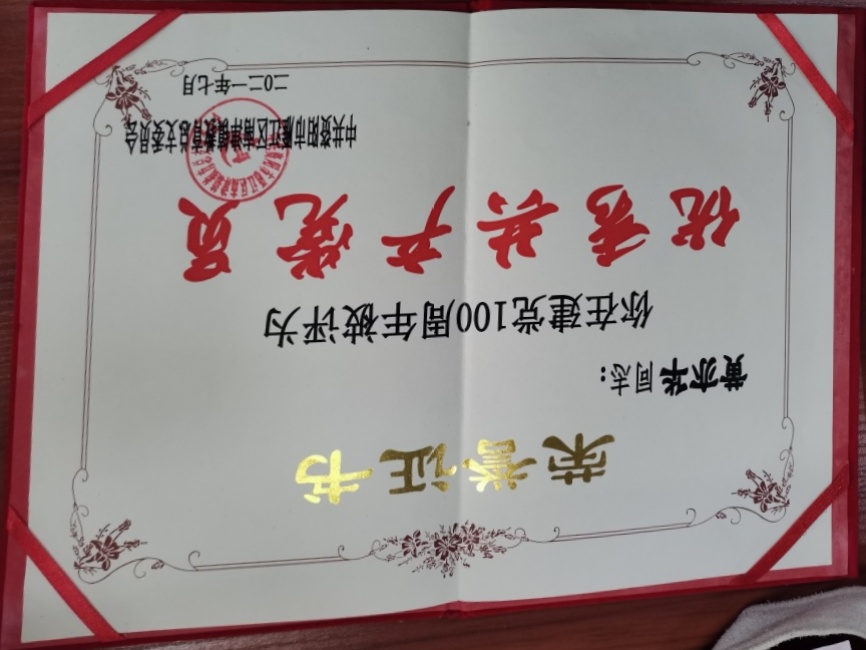 荣誉证书
黄亦华同志：
你在建党100周年被评为
优秀共产党员
中共资阳市雁江区南津镇教育总支委员会
二〇二一年七月